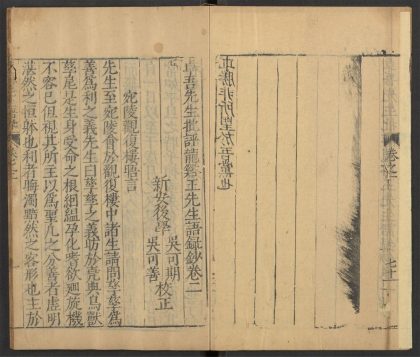 正脉非所望於吾黨也
卷之
七十一
吾先生批評龍谿王先生語錄鈔卷二
新安後學
吳可期
吳可善
校正
宛陵觀復樓晤言
先生至宛陵會於觀復樓中諸生請問孳孳為
善為利之義先生曰孳孳之義助於堯典鳥獸
孳尾是生身受命之根絪縕孕化嗜欲廻旋機
不容已但視其所主以為聖凡之分善者虛明
湛然之恒體也利者晦濁黯然之客形也主於